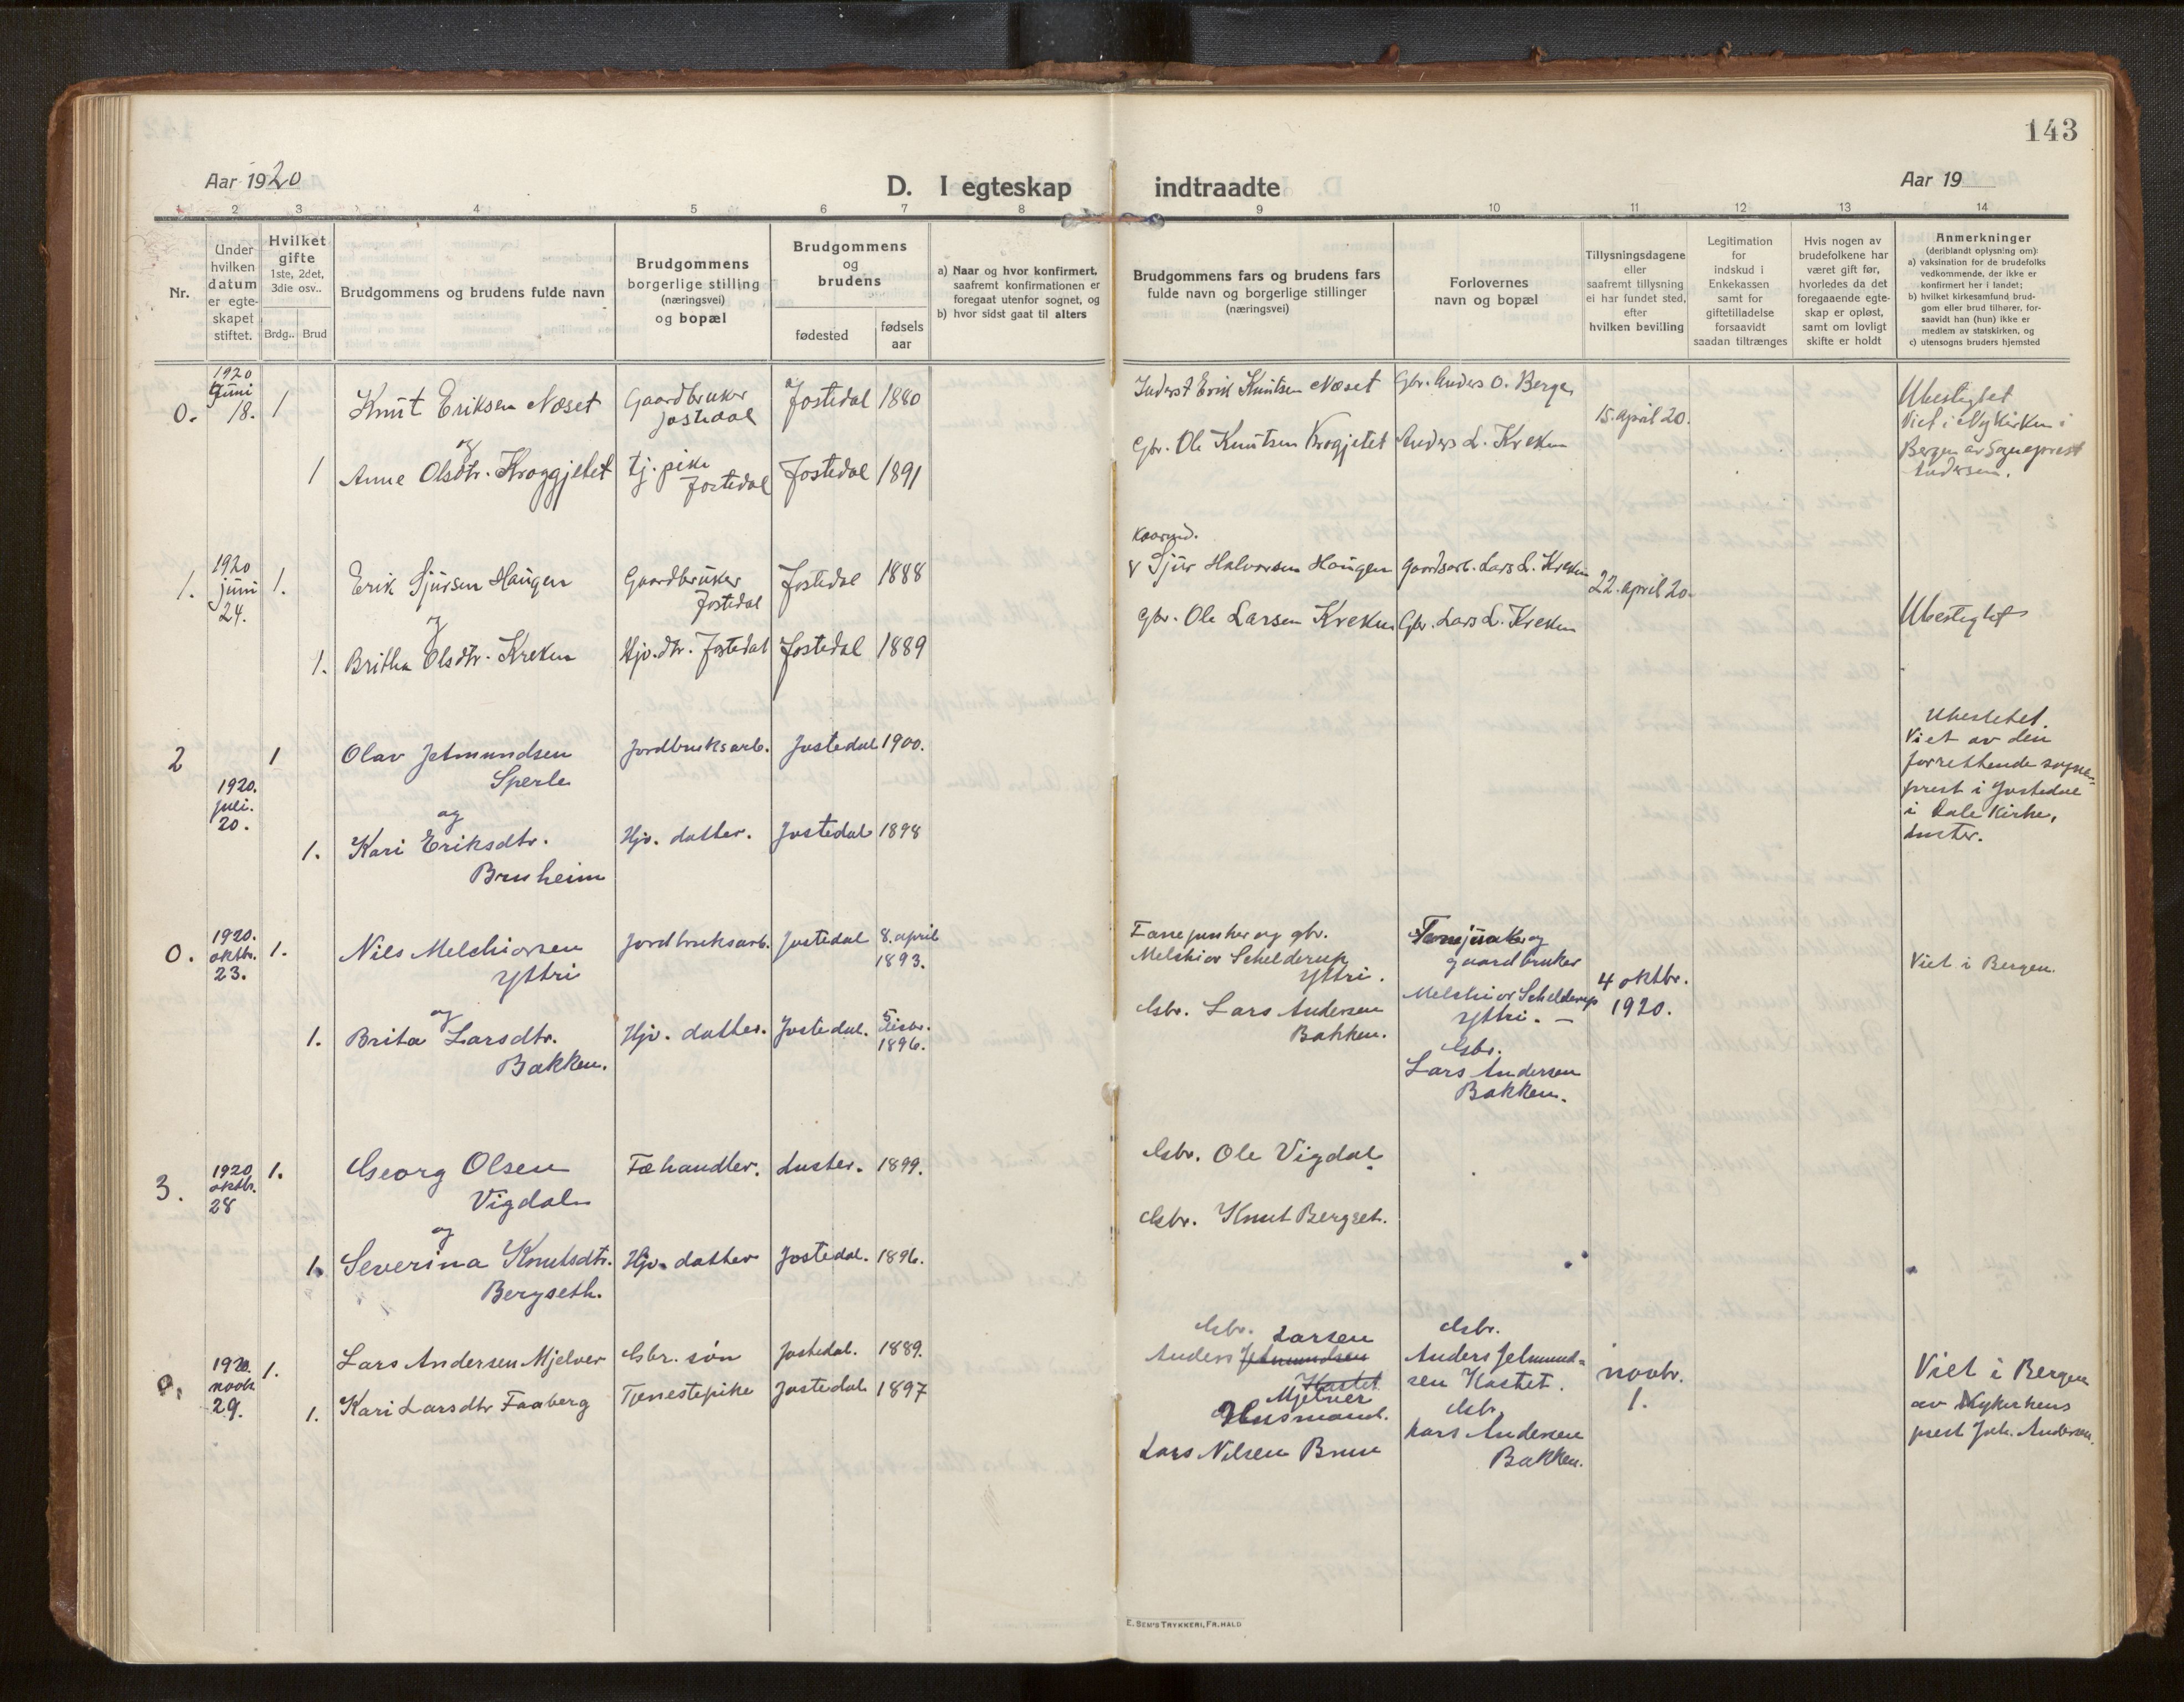 143
Aar 1920
D. I egteskap
indtraadte
Aar 19
1 2 3 4 5 6 7 8 9 10 11 12 13 14
Nr.
Under
hvilken
datum
er egte-
skapet
stiftet.
Hvilket
gifte
1ste, 2det,
3die osv..
Brdg.. Brud
Brudgommens og brudens fulde navn
Brudgommens
borgerlige stilling
(næringsvei)
og bopæl
Brudgommens
og
brudens
fødested
fødsels
aar
a) Naar og hvor konfirmert,
saafremt konfirmationen er
foregaat utenfor sognet, og
b) hvor sidst gaat til alters
Brudgommens fars og brudens fars
fulde navn og borgerlige stillinger
(næringsvei)
Forlovernes
navn og bopæl
Tillysningsdagene
eller
saafremt tillysning
ei har fundet sted,
efter
hvilken bevilling
Legitimation
for
indskud i
Enkekassen
samt for
giftetilladelse
forsaavidt
saadan tiltrænges
Hvis nogen av
brudefolkene har
været gift før,
hvorledes da det
foregaaende egte-
skap er opløst,
samt om lovligt
skifte er holdt
Anmerkninger
(deriblandt oplysning om):
a) vaksination for de brudefolks
vedkommende, der ikke er
konfirmert her i landet;
b) hvilket kirkesamfund brud-
gom eller brud tilhører, for-
saavidt han (hun) ikke er
medlem av statskirken, og
c) utensogns bruders hjemsted
0.
1920
Juni
18.
1
Knut Eriksen Næset
Gaardbruker
Jostedal
Jostedal
1880
Inderst Erik Knutsen Næset
Gbr. Anders O. Berge
15. april 20.
Ubeslegtet
Viet i Nykirken i
Bergen av Sogneprest
Andersen.
og
1
Anne Olsdtr. Kroggjelet
tj. pike
Jostedal
Jostedal
1891
Gbr. Ole Knutsen Krogjelet
Anders L. Kreken
1.
1920
juni
24.
1.
Erik Sjursen Haugen
Gaardbruker
Jostedal
Jostedal
1888
Kaarmd.
Sjur Halvorsen Haugen
Gaardsarb. Lars L. Kreken
22. april 20.
og
1.
Britha Olsdtr. Kreken
Hjv. dtr. Jostedal
Jostedal
1889
Gbr. Ole Larsen Kreken
Gbr. Lars L. Kreken
Ubeslegtet
2
1920.
juli.
20.
1
Olav Jetmundsen
Sperle
Jordbruksarb.
Jostedal
1900.
Ubeslektet.
Viet av den
forrettende sogne-
prest i Jostedal
i Dale Kirke,
Luster.
og
1.
Kari Eriksdtr.
Bruheim
Hjv. datter.
Jostedal
1898
0.
1920.
oktbr.
23.
1.
Nils Melchiorsen
Yttri
Jordbruksarb.
Jostedal
8. april
1893.
og gbr.
Melchior Schelderup
Yttri.
og
gaardbruker
Melchior Schelderup
Yttri. —
4 oktbr.
1920.
Viet i Bergen.
og
1.
Brita Larsdtr.
Bakken.
Hjv. datter.
Jostedal.
1896.
Gbr. Lars Andersen
Bakken.
Gbr.
Lars Andersen
Bakken.
3.
1920
oktbr.
28
1.
Georg Olsen
Vigdal
Fæhandler.
Luster.
1899.
Gbr. Ole Vigdal
og
1.
Severina Knutsdtr.
Bergseth.
Hjv. datter
Jostedal.
1896.
Gbr. Knut Bergset.
0.
1920.
novbr.
29.
1.
Lars Andersen Mjelver
Gbr. søn
Jostedal.
1889.
Gbr. Larsen
Anders Jetmundsen
Kastet
Mjelver
Gbr.
Anders Jetmund-
sen Kastet.
novbr.
1.
Viet i Bergen
av Nykirkens
prest Joh. Andersen.
1.
Kari Larsdtr Faaberg
Tjenestepike
Jostedal
1897
Husmand.
Lars Nilsen Bruu
Gbr.
Lars Andersen
Bakken.
E. SEM'S TRYKKERI, FR.HALD